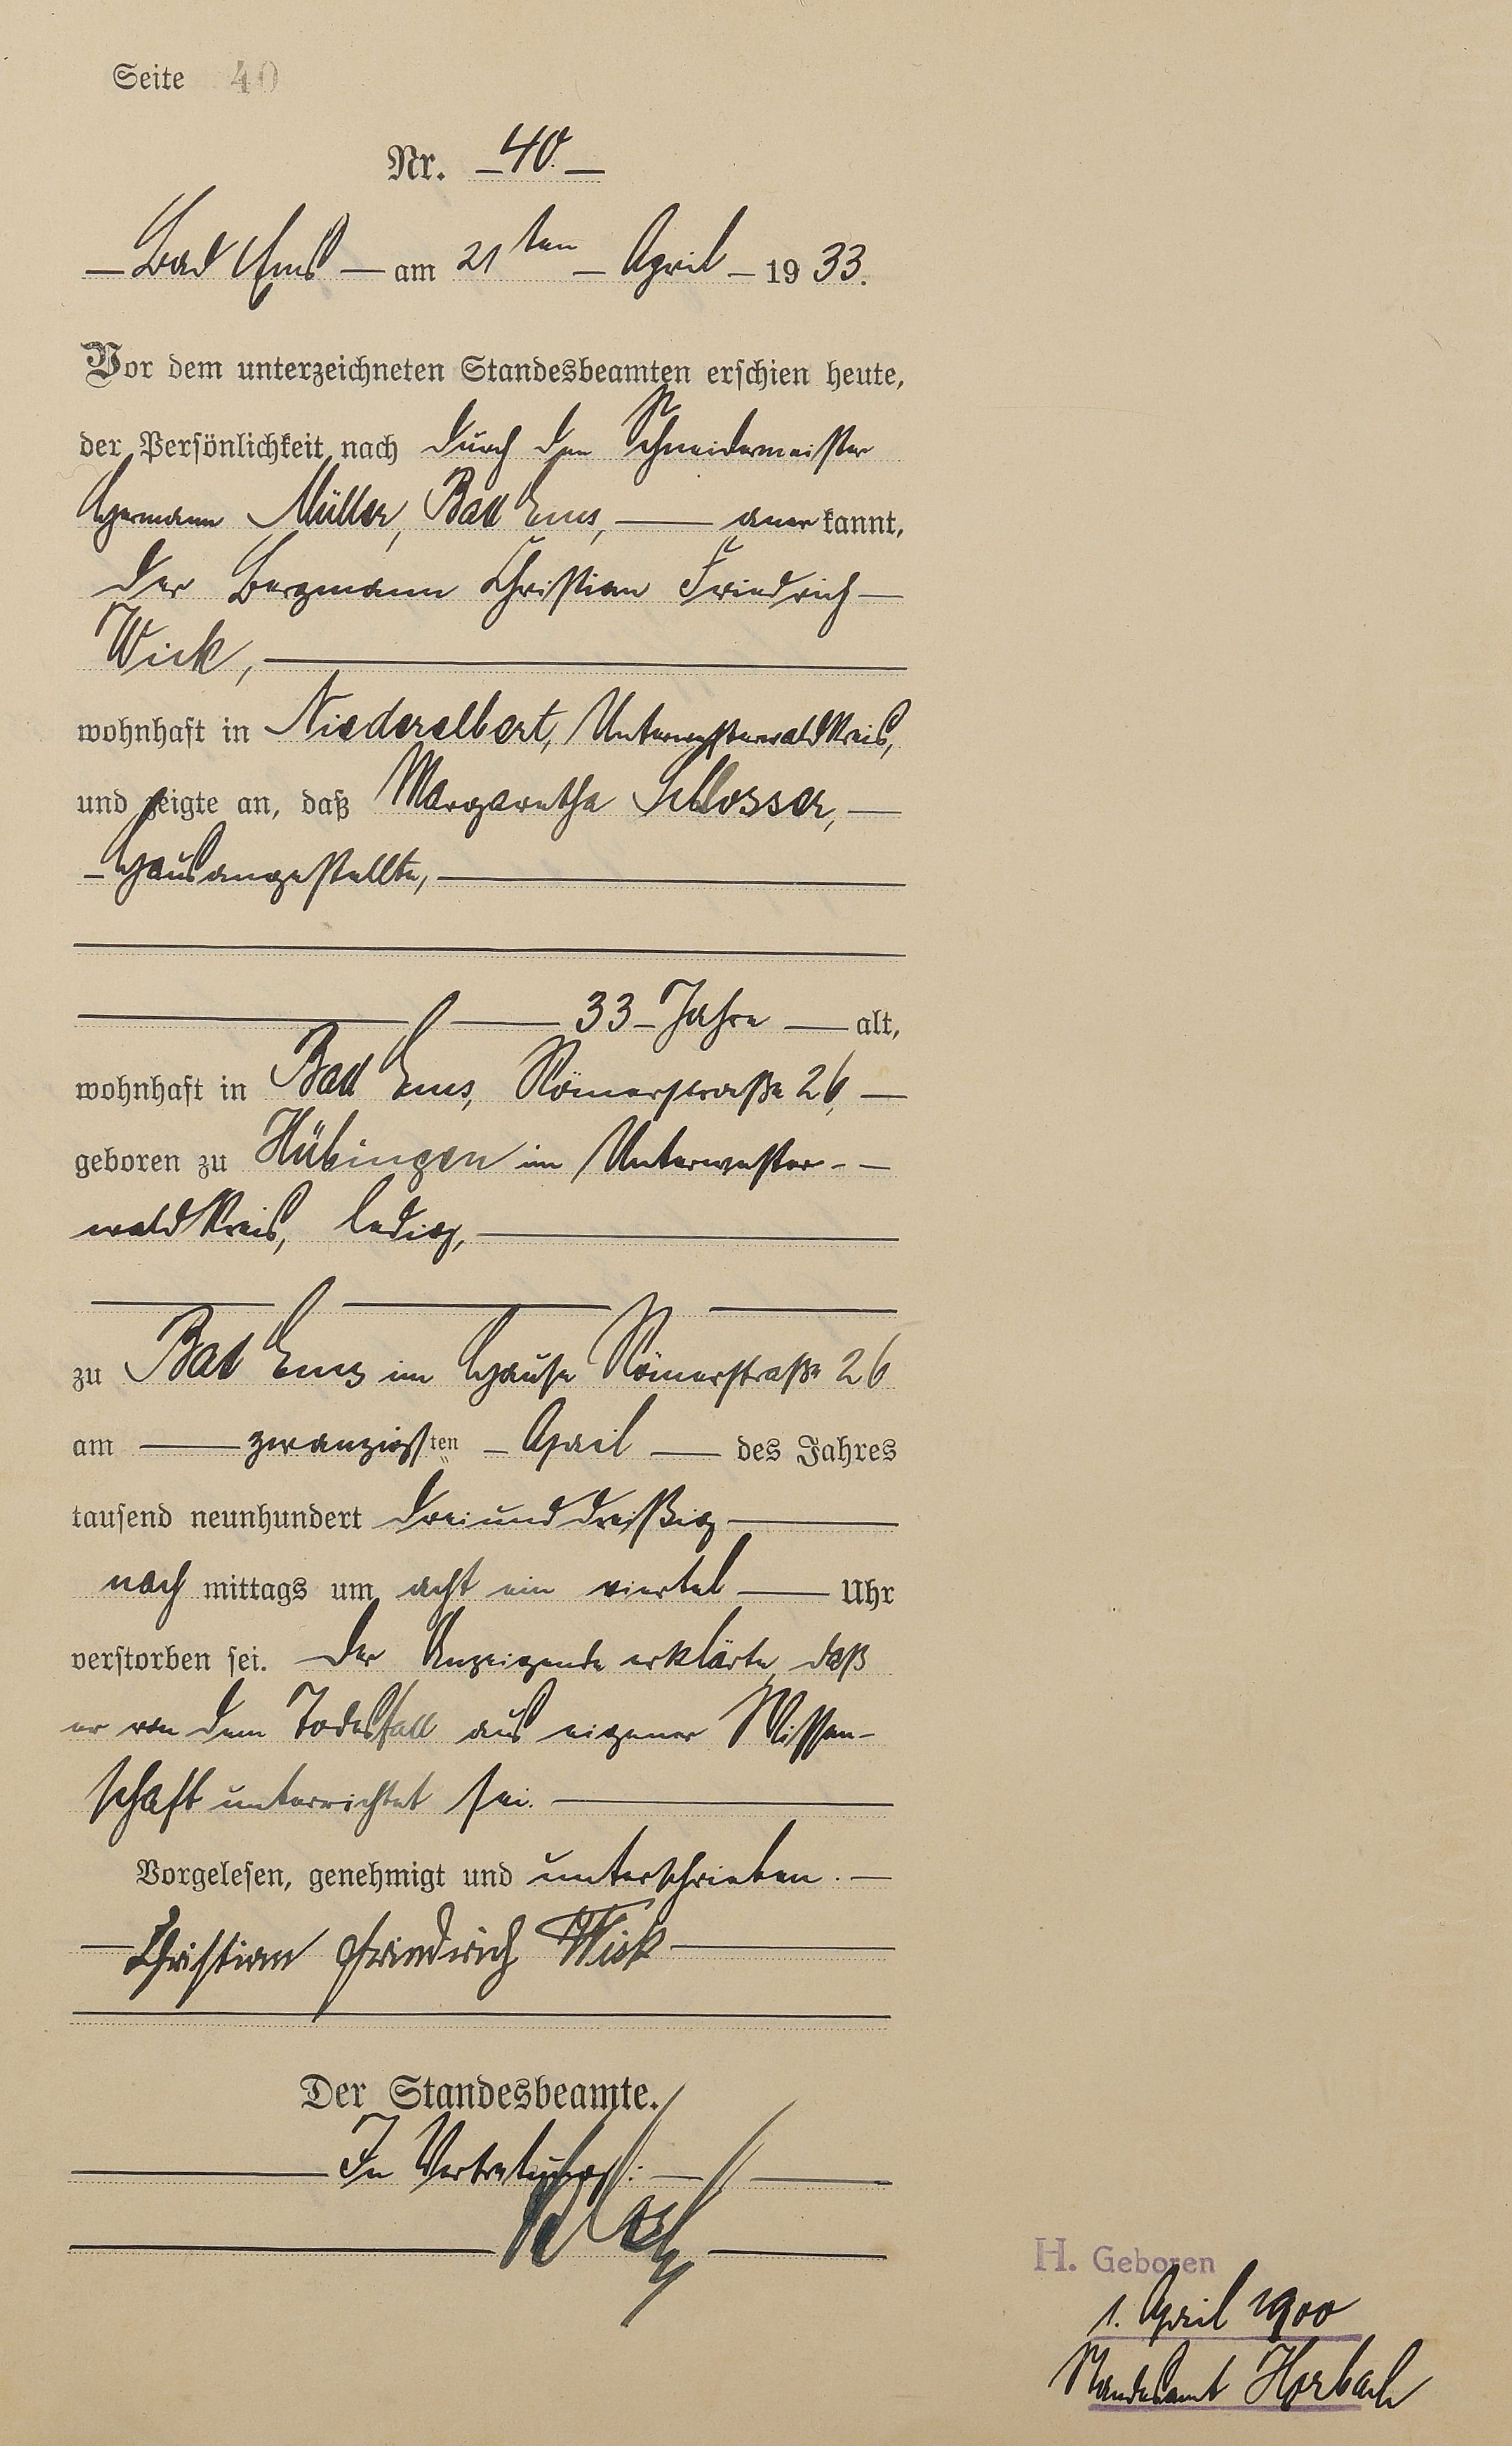 Seite 40
Nr. 40.
Bad Ems am 21ten April 1933.
Vor dem unterzeichneten Standesbeamten erschien heute,
der Persönlichkeit nach durch den Schneidermeister
Hermann Müller, Bad Ems, anerkannt,
der Bergmann Christian Friedrich
Wick,
wohnhaft in Niederelbert, Unterwesterwaldkreis,
und zeigte an, daß Margaretha Schlosser,
Hausangestellte,
33 Jahre alt,
wohnhaft in Bad Ems, Römerstraße 26,
geboren zu Hübingen im Unterwester-
waldkreis, ledig,
zu Bad Ems im Hause Römerstraße 26
am zwanzigsten April des Jahres
tausend neunhundert dreiunddreißig
nachmittags um acht ein viertel Uhr
verstorben sei. Der Anzeigende erklärte, daß
er von dem Todesfall aus eigener Wissen-
schaft unterrichtet sei.
Vorgelesen, genehmigt und unterschrieben.
Christian Friedrich Wick
Der Standesbeamte.
In Vertretung:
H. Geboren
1. April 1900
Standesamt Horbach